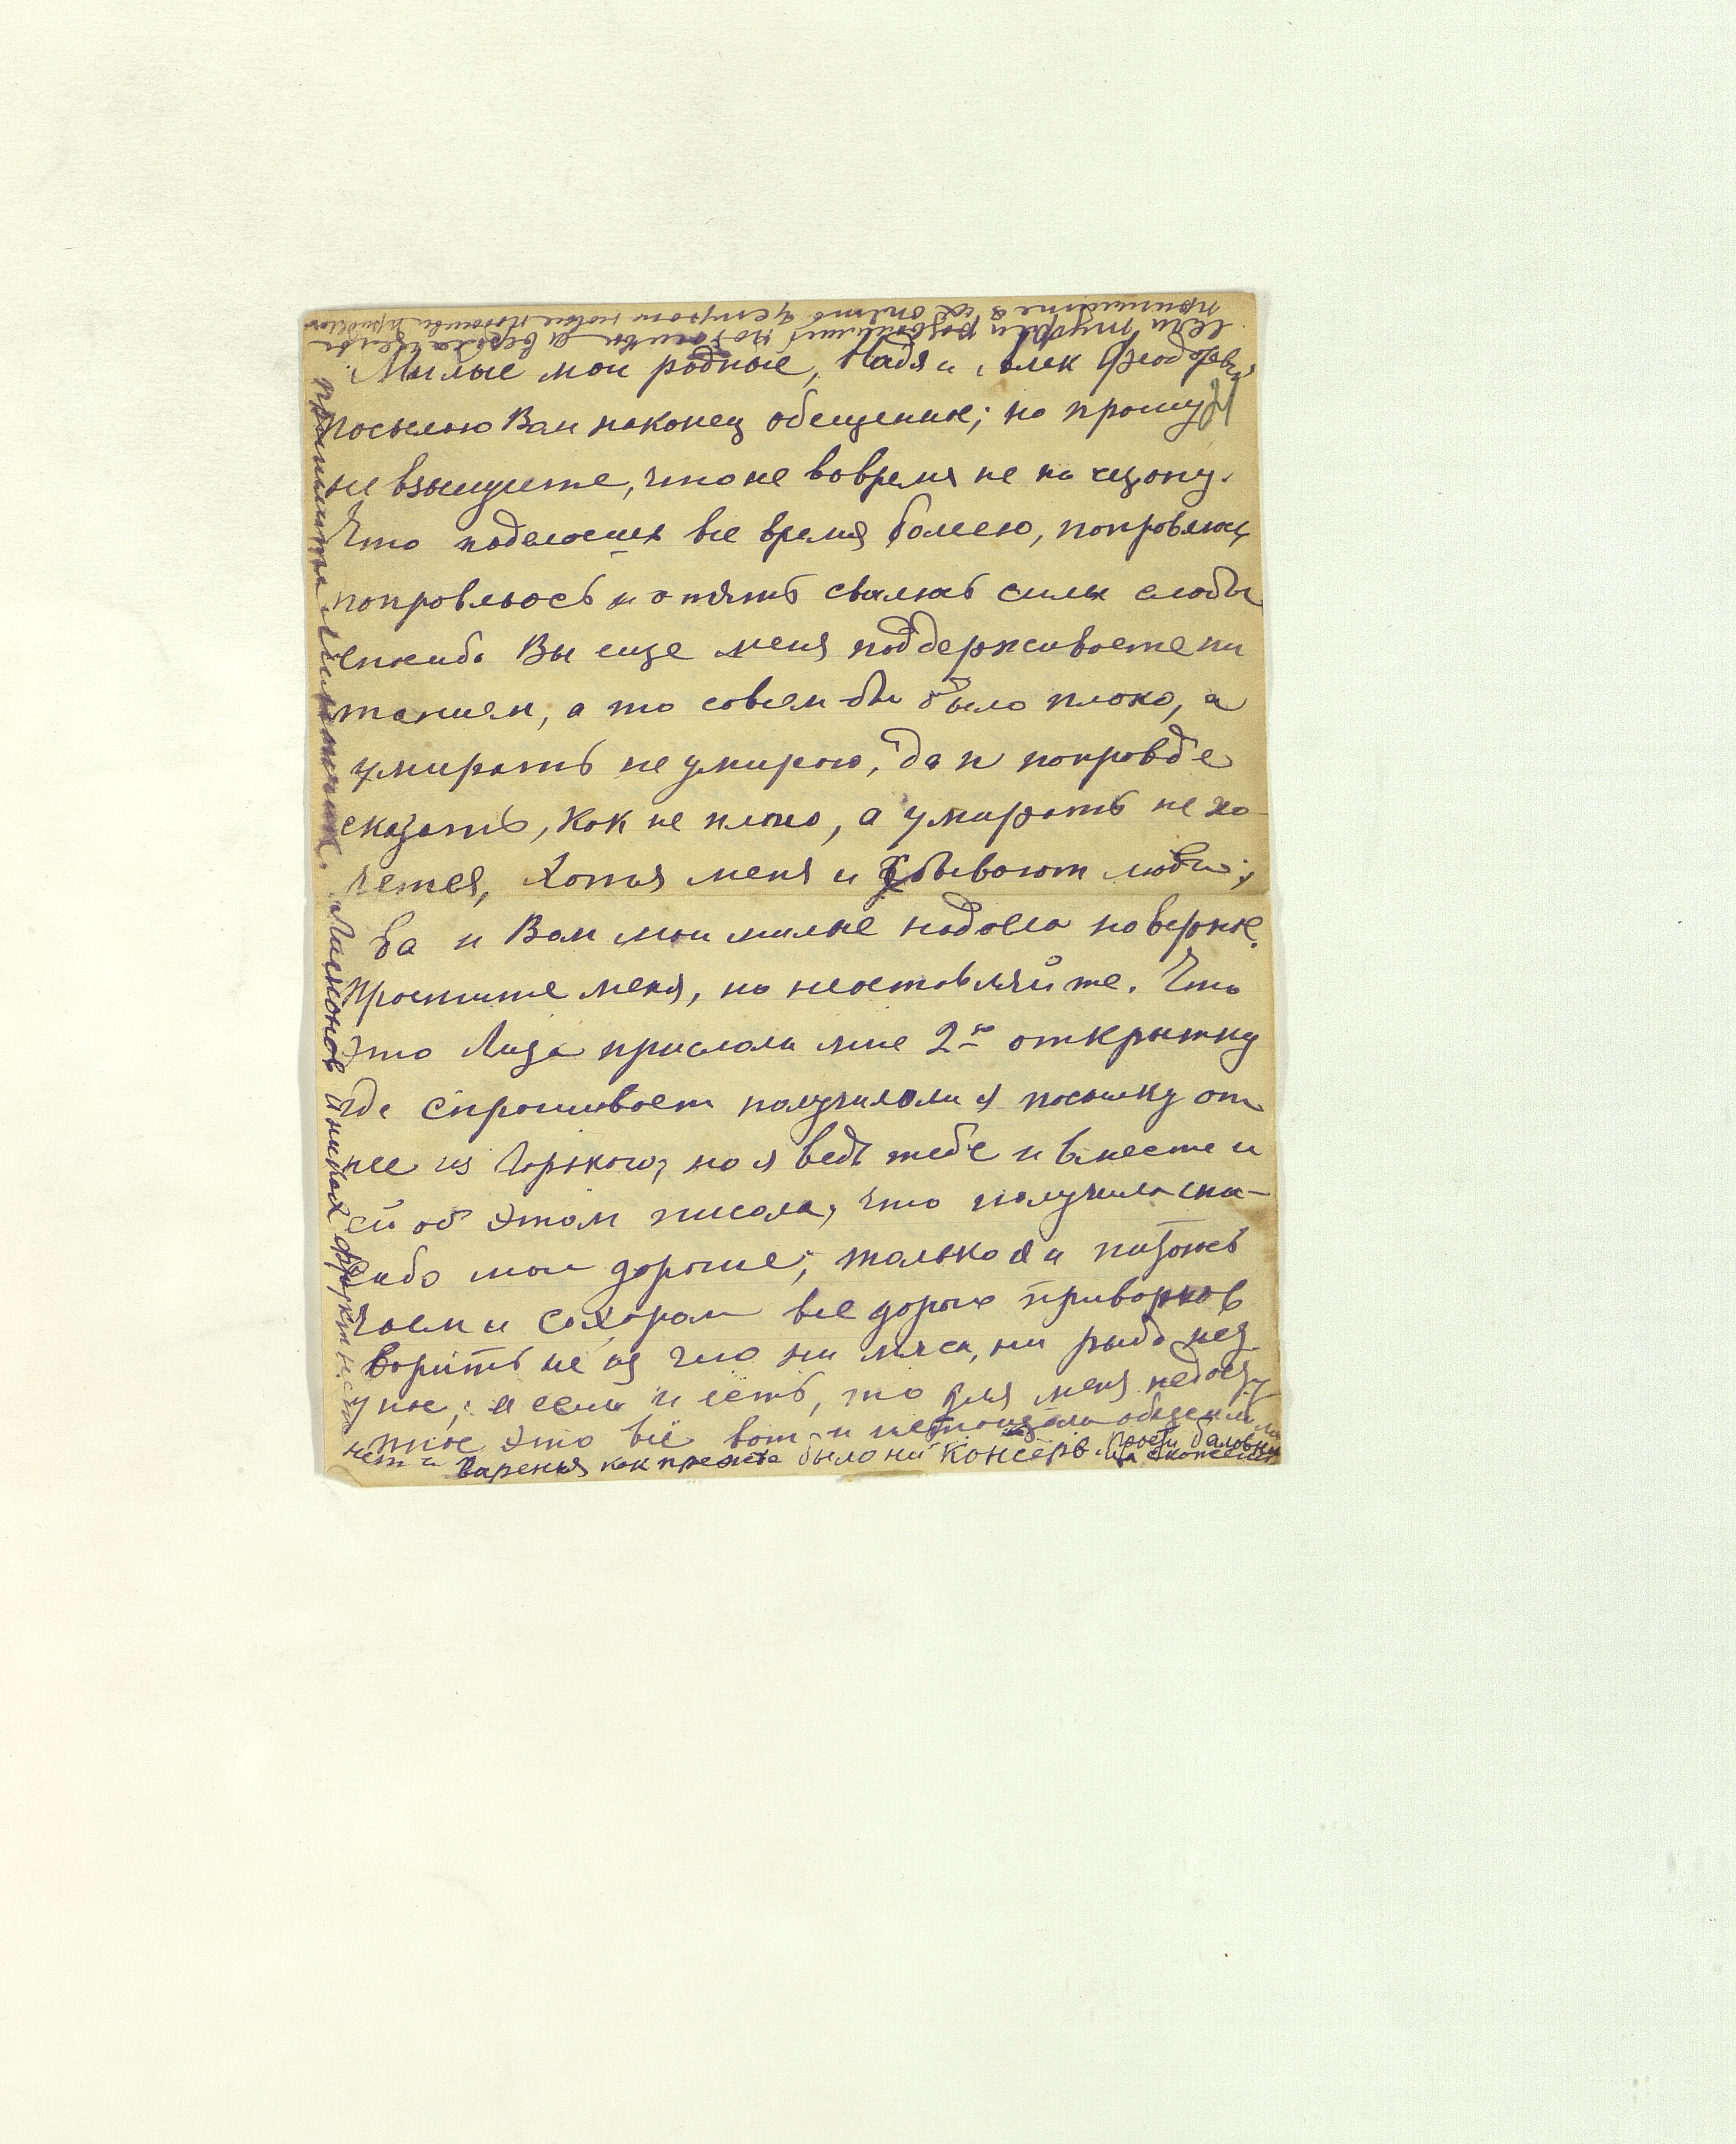 Милые мои родные, Надя и Алек Феодоровч
посылаю Вам наконец обещенное; но прошу
не взыщите, что не вовремя не по сезону.
Что поделаешь все время болею, поправлюсь
поправлюсь и опять свалюсь силы слабы
спасибо Вы еще меня поддерживаете пи
танием, а то совсем бы было плохо, а
умирать не умираю, да и поправде
сказать, как не плохо, а умирать не хо
чется, хотя меня и забывают люди;
да и Вам мои милые надоела наверное.
Простите меня, но неоставляйте. Что
это Лиза прислала мне 2ю открытку
где спрашивает получилали я посылку от
нее из Горького, но я ведь тебе и вместе и
ей об этом писала, что получила спа-
сибо мои дорогие; только я и питаюсь
чаем и сахаром все дорого приварков
варить не из чего ни мяса, ни рыбы нет
у нас, а если и есть, то для меня недосту
пное это всё вот и
нет и варенья как прежде было ни консерв. Прости
пришлите лимончик. Лимонов и никаких фруктов
если туфли
пришлите я их опять